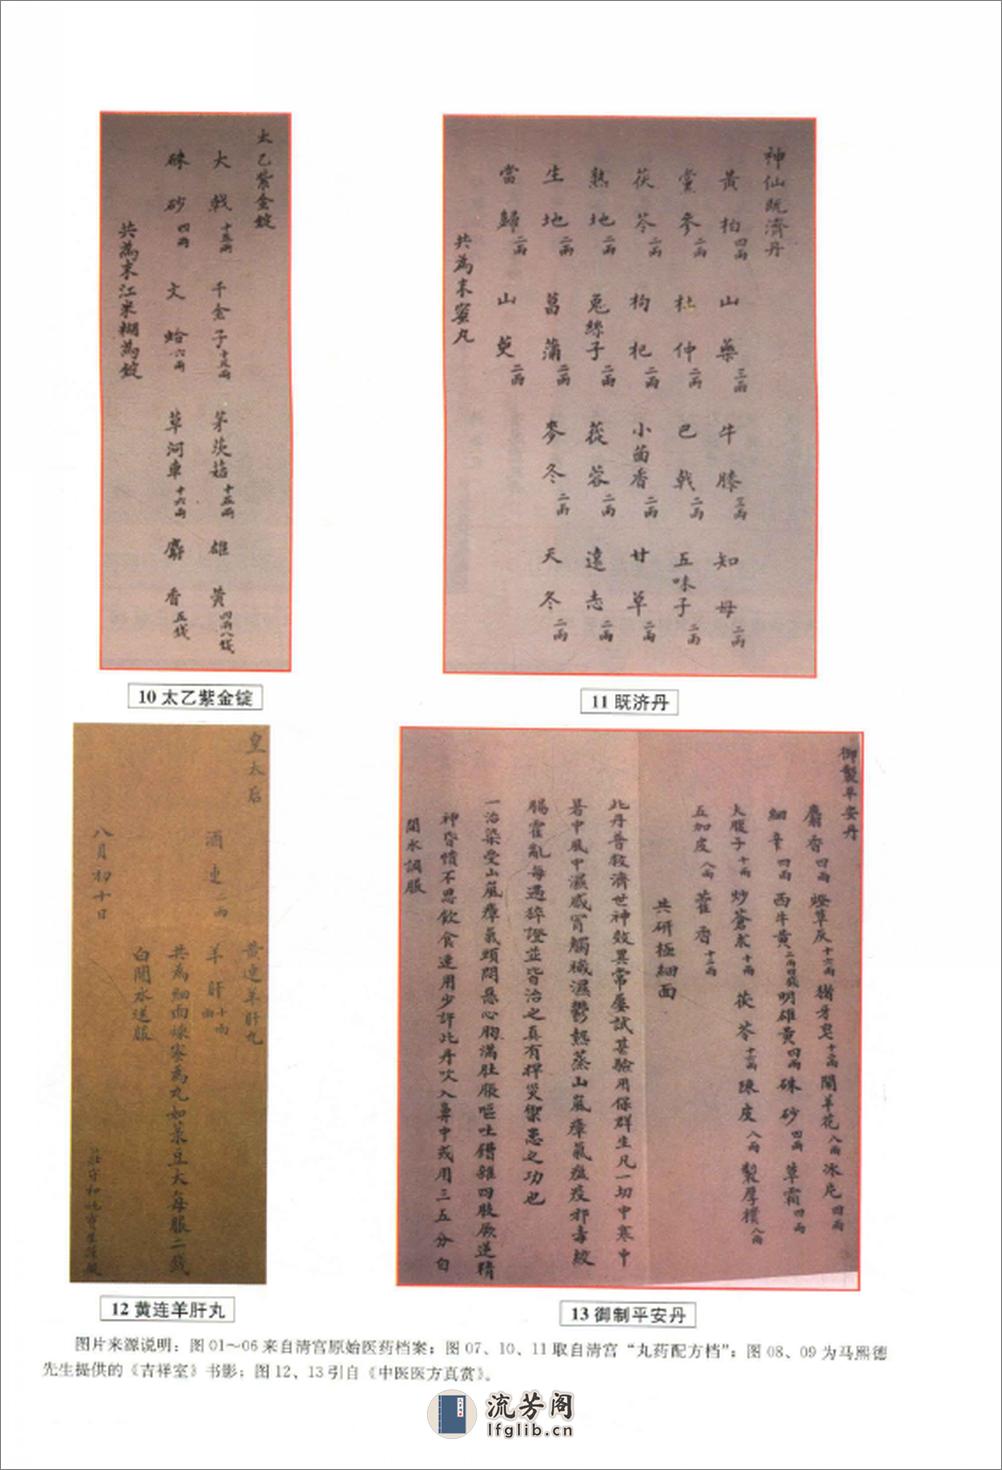 太乙紫金錠
大戟十五兩 千金子十五兩 茅茨菇十五兩 雄黃四兩八錢
硃砂四兩 文蛤六兩 草河車十六兩 麝香五錢
共為末江米糊為錠
10 太乙紫金锭
神仙既濟丹
黃柏四兩 山藥三兩 牛膝三兩 知母二兩
黨參二兩 杜仲二兩 巴戟二兩 五味子二兩
茯苓二兩 枸杞二兩 小茴香二兩 甘草二兩
熟地二兩 兎絲子二兩 蓯蓉二兩 遠志二兩
生地二兩 菖蒲二兩 麥冬二兩 天冬二兩
當歸二兩 山萸二兩
共為末蜜丸
11 既济丹
皇太后
黃連羊肝丸
酒連二兩 羊肝十兩
共為細面煉蜜為丸如菉豆大每服二錢
白開水送服
八月初十日
莊守和
12 黄连羊肝丸
御製平安丹
麝香四兩 燈草灰十六兩 猪牙皂十二兩 鬧羊花八兩 冰片四兩
細辛四兩 西牛黃二兩四錢 明雄黃四兩 硃砂四兩 草霜四兩
大腹子十兩 炒蒼朮十兩 茯苓十二兩 陳皮八兩 製厚樸八兩
五加皮八兩 藿香十二兩
共研極細面
此丹普救濟世神效異常屢試甚驗用保群生凡一切中寒中
暑中風中濕感冒觸穢濕鬱熱蒸山嵐瘴氣瘟疫邪毒絞
腸霍亂每遇猝證並皆治之真有捍災禦患之功也
一治染受山嵐瘴氣頭悶惡心胸滿肚脹嘔吐錯雜四肢厥逆精
神昏憒不思飲食速用少許此丹吹入鼻中或用三五分白
開水調服
13 御制平安丹
图片来源说明：图 01～06 来自清宫原始医药档案；图 07、10、11 取自清宫“丸药配方档”；图 08、09 为马熙德
先生提供的《吉祥室》书影；图 12、13 引自《中医医方真赏》。
流芳阁
lfglib.cn